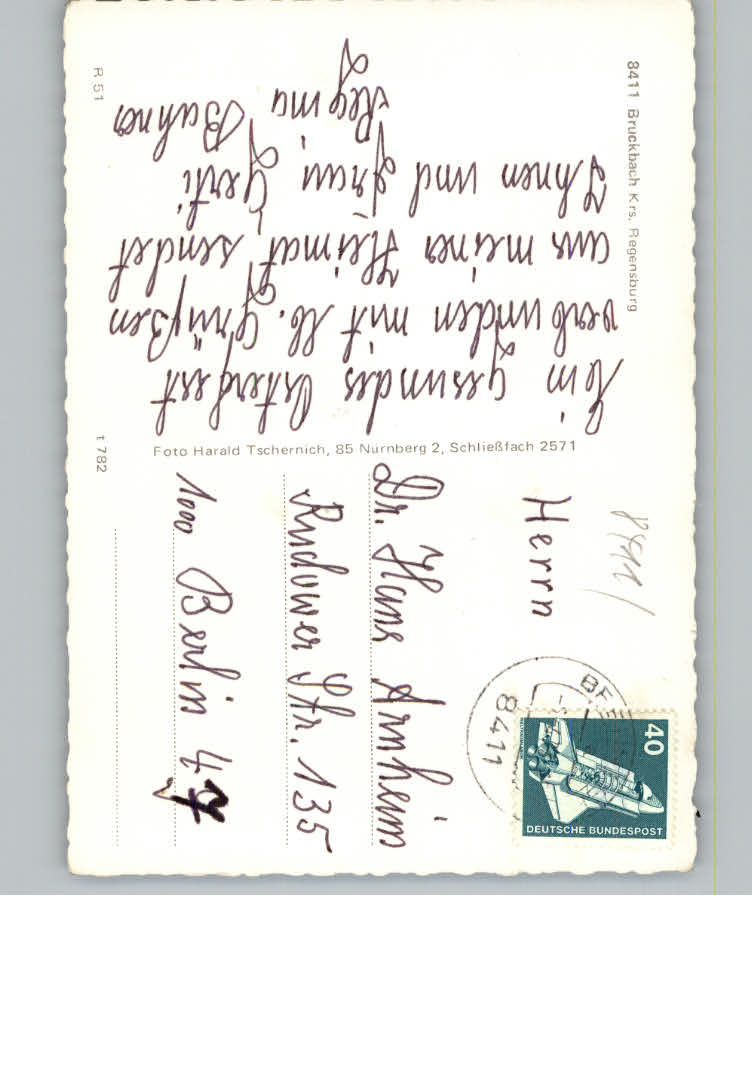 8411 Bruckbach Krs. Regensburg
Ein gesundes Osterfest
verbunden mit lb. Grüßen
aus meiner Heimat sendet
Ihnen und Frau Gerti
Regina Bahner
R 51
t 782
Foto Harald Tschernich, 85 Nürnberg 2, Schließfach 2571
8411
Herrn
Dr. Hans Arnheim
Rudower Str. 135
1000 Berlin 47
8411
40
DEUTSCHE BUNDESPOST